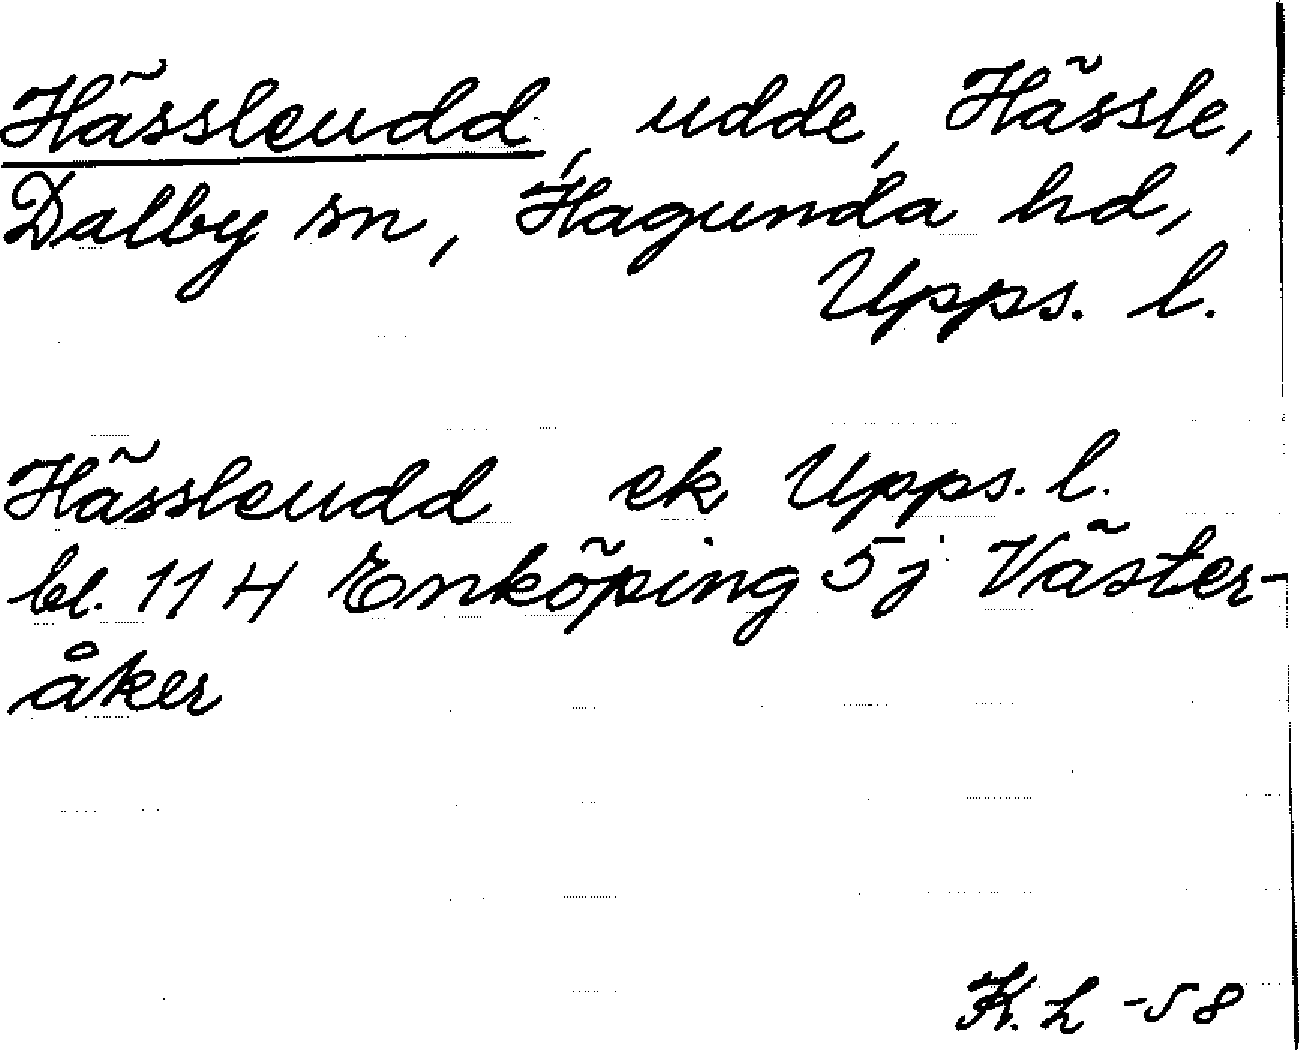 Hässleudd, udde, Hässle,
Dalby sn, Hagunda hd,
Upps. l.
Hässleudd ek Upps. l.
bl. 11 H Enköping 5j Väster-
åker
K. L -58